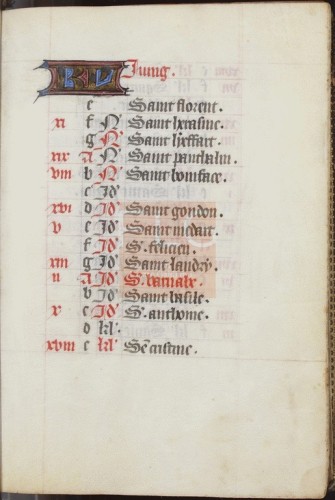 KL Iung.
e Saint florent.
xi f N' Saint herasme.
g N' Saint lyeffart.
xix A N' Saint panthalin.
viii b N' Saint boniface.
c Id'
xvi d Id' Saint gondon.
v e Id' Saint medart.
f Id' S'. felicien.
xiii g Id' Saint landry.
ii A Id' S'. barnabe.
b Id' Saint basile.
x c Id' S'. anthoine.
d kl'.
xviii e kl' Sē cristine.